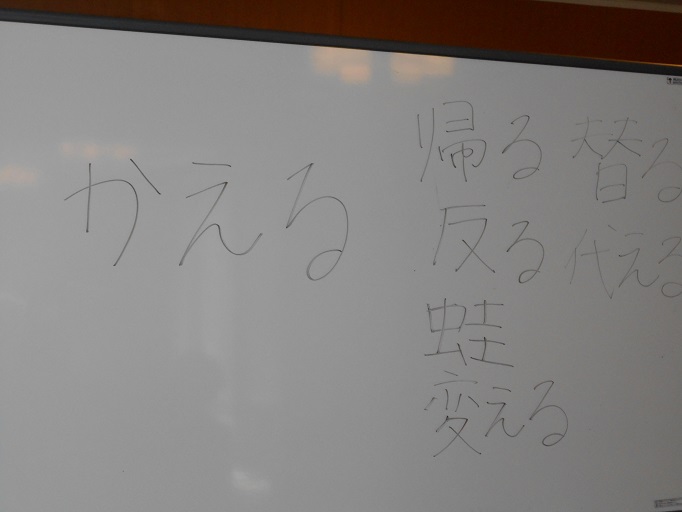 かえる
帰る
反る
蛙
変える
替る
代える